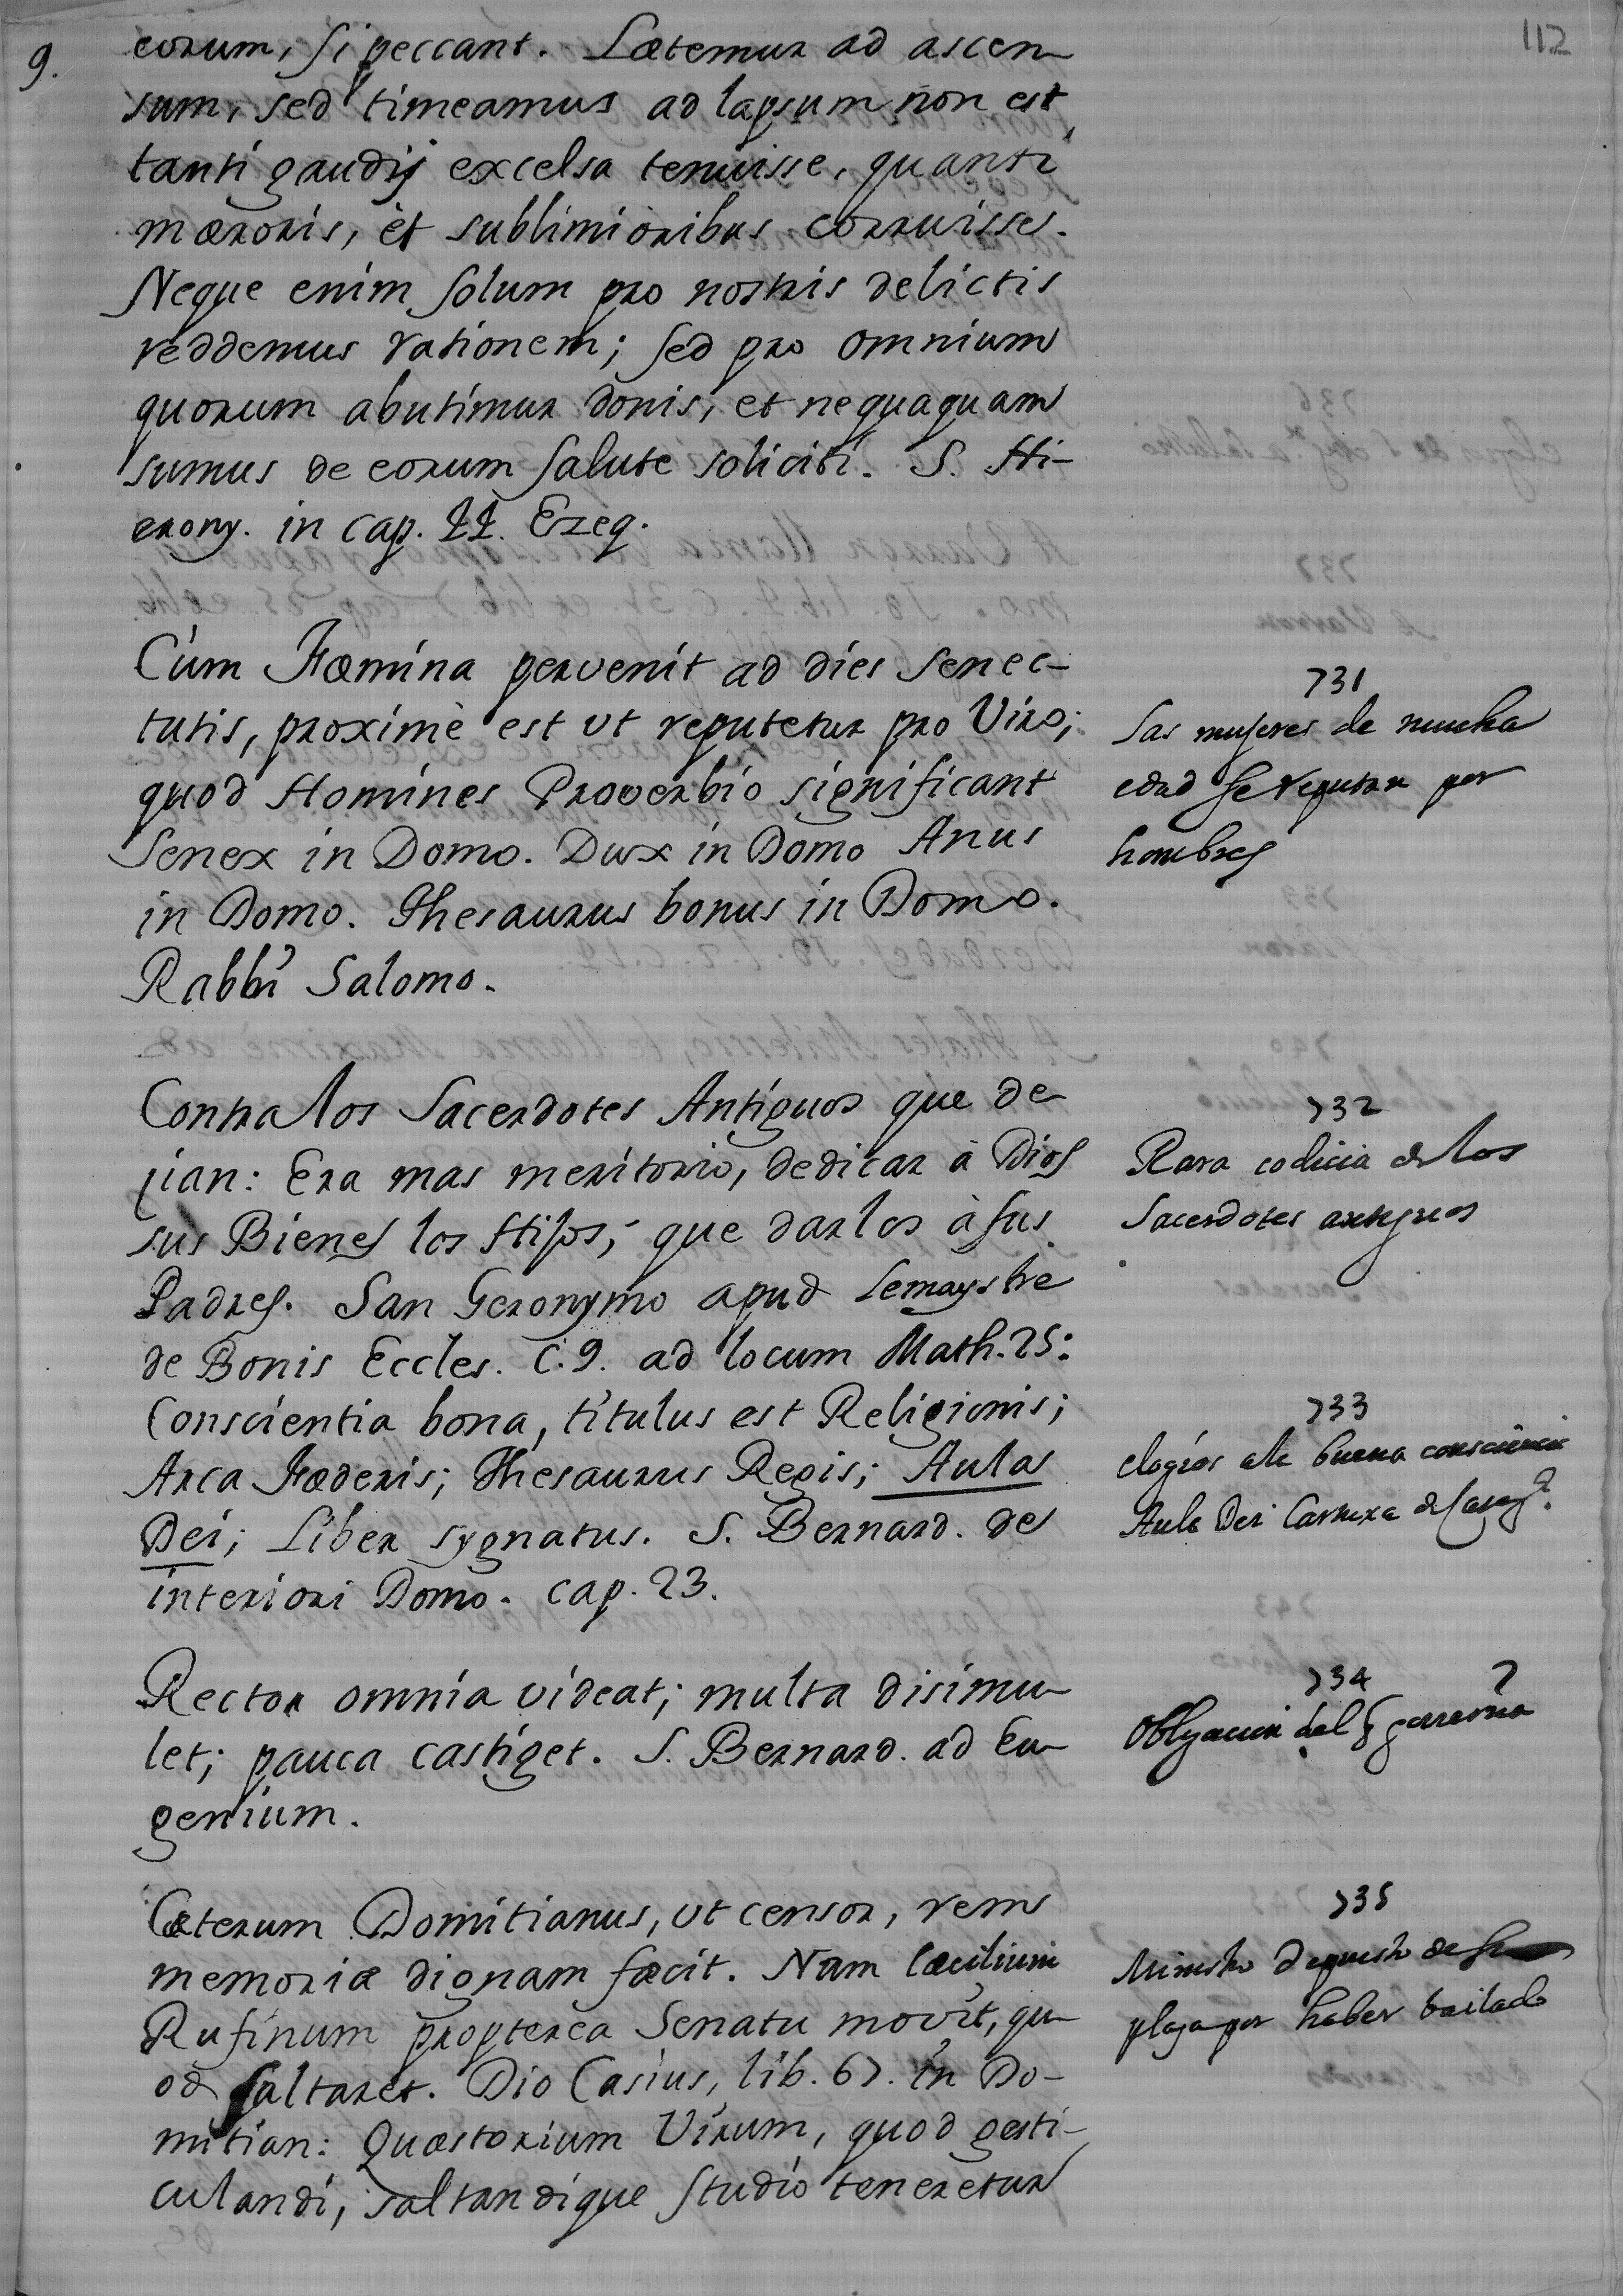 112
9.
eorum, si peccant. Lætemur ad ascen-
sum, sed timeamus ad lapsum non est
tanti gaudij excelsa tenuisse, quanti
mæroris, èt sublimioribus corruisse.
Neque enim solum pro nostris delictis
reddemus rationem; sed pro omnium
quorum abutimur donis, et nequaquam
sumus de eorum salute soliciti. S. Hi-
erony. in cap. 44. Ezeq.
Cùm Fæmina pervenit ad dies senec-
tutis, proximè est ut reputetur pro Viro;
quod Homines Proverbio significant
Senex in Domo. Dux in Domo Anus
in Domo. Thesaurus bonus in Domo.
Rabbi Salomo.
731
Las mujeres de mucha
edad se reputan por
hombres
Contra los Sacerdotes Antiguos que de-
jian: Era mas meritorio, dedicar à Dios
sus Bienes los Hijos, que darlos à sus
Padres. San Geronymo apud Lemaystre
de Bonis Eccles. C. 9. ad locum Math. 25:
732
Rara codicia de los
Sacerdotes antiguos
Conscientia bona, titulus est Religionis;
Arca Fæderis; Thesaurus Regis; Aula
Dei; Liber sygnatus. S. Bernard. de
interiori Domo. cap. 23.
733
elogios a la buena consciencia
Aula Dei Cartuxa de
Rector omnia videat; multa disimu-
let; pauca castiget. S. Bernard. ad Eu-
genium.
734
Obligacion del q govierna
Cæterum Domitianus, ut censor, rem
memoriæ dignam fæcit. Nam Cæcilium
Rufinum propterea Senatu movit, qu-
od saltaret. Dio Casius, lib. 67. in Do-
mitian: Quæstorium Virum, quod gesti-
culandi, saltandique studio teneretur
735
Ministro depuesto de su
plaza por haber bailado